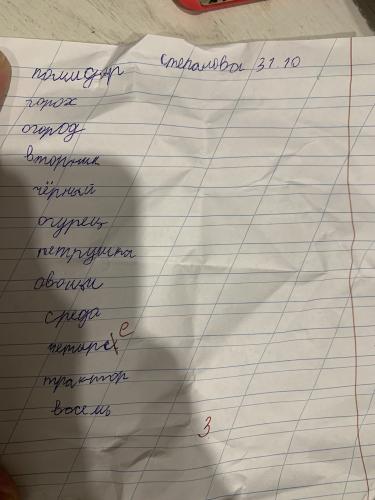 помидор Степанова 31 10
горох
огород
вторник
чёрный
огурец
петрушка
овощи
среда
е
трактор
восемь
3